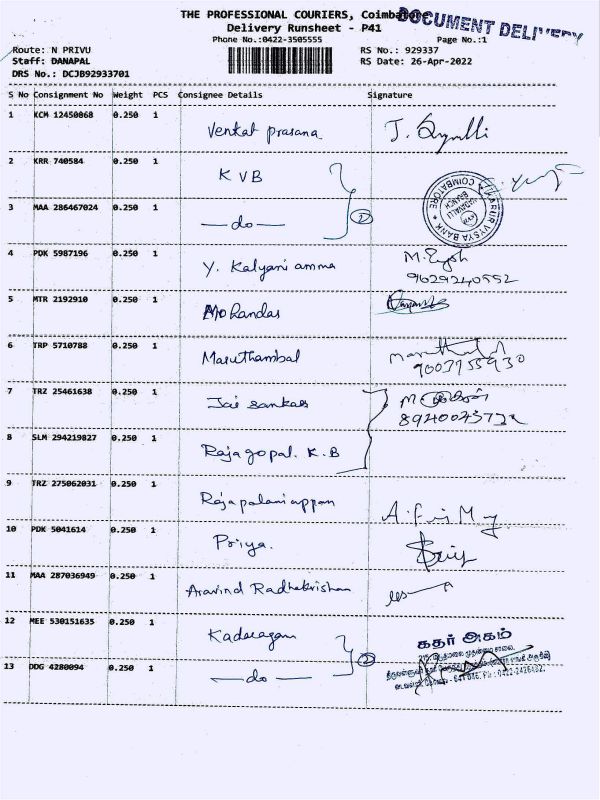 THE PROFESSIONAL COURIERS, Coimbatore
DOCUMENT DELIVERY
Delivery Runsheet - P41
Phone No.:0422-3505555
Page No.:1
Route: N PRIVU
RS No.: 929337
Staff: DANAPAL
RS Date: 26-Apr-2022
DRS No.: DCJB92933701
S No Consignment No Weight PCS Consignee Details Signature
1 KCM 12450868 0.250 1 Venkat prasana
2 KRR 740584 0.250 1 KVB
3 MAA 286467024 0.250 1 — do — 2
KARUR VYSYA BANK * COIMBATORE * BRANCH
4 PDK 5987196 0.250 1 Y. Kalyani amma
9629240552
5 MTR 2192910 0.250 1 Mohandas
6 TRP 5710788 0.250 1 Maruthambal
7 TRZ 25461638 0.250 1 Jai sankar
8 SLM 294219827 0.250 1 Rajagopal. K.B
9 TRZ 275062031 0.250 1 Rajapalaniappan
10 PDK 5041614 0.250 1 Priya.
11 MAA 287036949 0.250 1 Aravind Radhakrishan
12 MEE 530151635 0.250 1 Kadaragam
கதர் அகம்
13 DDG 4280094 0.250 1 — do — 2